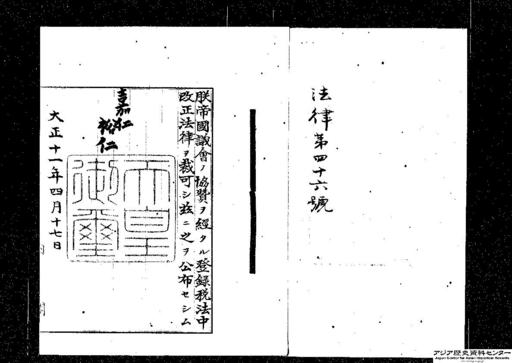 法律第四十六號
朕帝國議會ノ協贊ヲ經タル登録税法中
改正法律ヲ裁可シ玆ニ之ヲ公布セシム
嘉仁
裕仁
天皇
御璽
大正十一年四月十七日
アジア歴史資料センター
Japan Center for Asian Historical Records